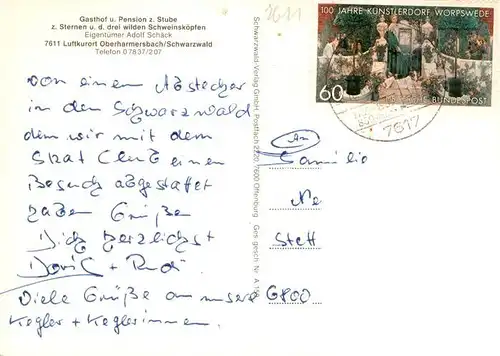 Gasthof u. Pension z. Stube
z. Sternen u. d. drei wilden Schweinsköpfen
Eigentümer Adolf Schäck
7611 Luftkurort Oberharmersbach/Schwarzwald
Telefon 07837/207
von einem Abstecher
in den Schwarzwald
dem wir mit dem
Skat Club einen
Besuch abgestattet
haben Grüßen
Dich herzlichst
Doris + Rudi
Viele Grüße an unsere
Kegler + Keglerinnen.
Schwarzwald-Verlag GmbH, Postfach 2220, 7600 Offenburg Ges. gesch. Nr. A
7611
100 JAHRE KÜNSTLERDORF WORPSWEDE
60
DEUTSCHE BUNDESPOST
761
An
Familie
Ne
Stett
6800